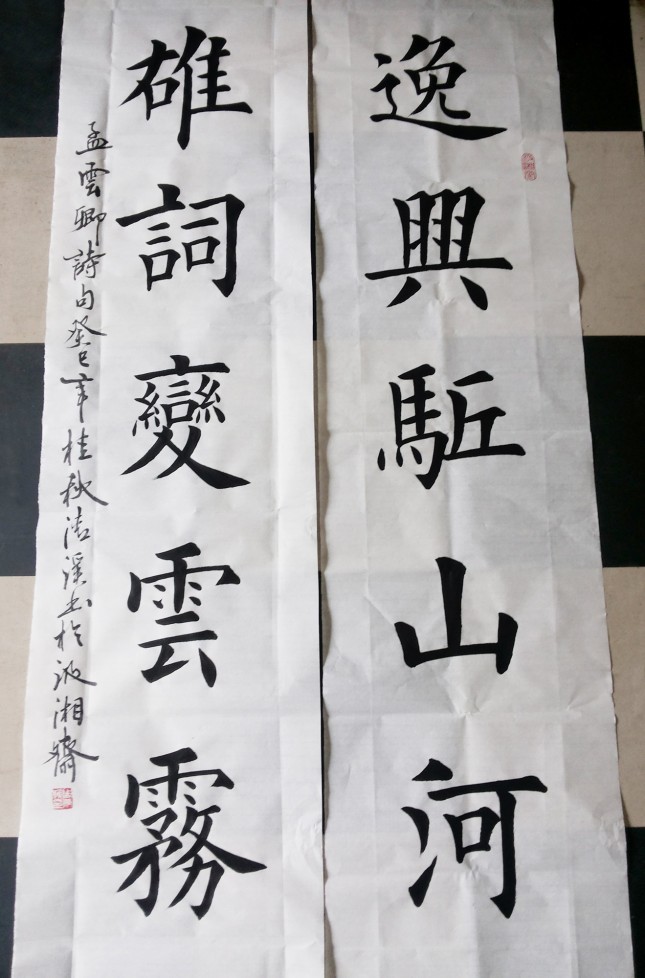 逸興駈山河
雄詞變雲霧
孟雲卿詩句癸巳年桂秋清溪书於湘齋